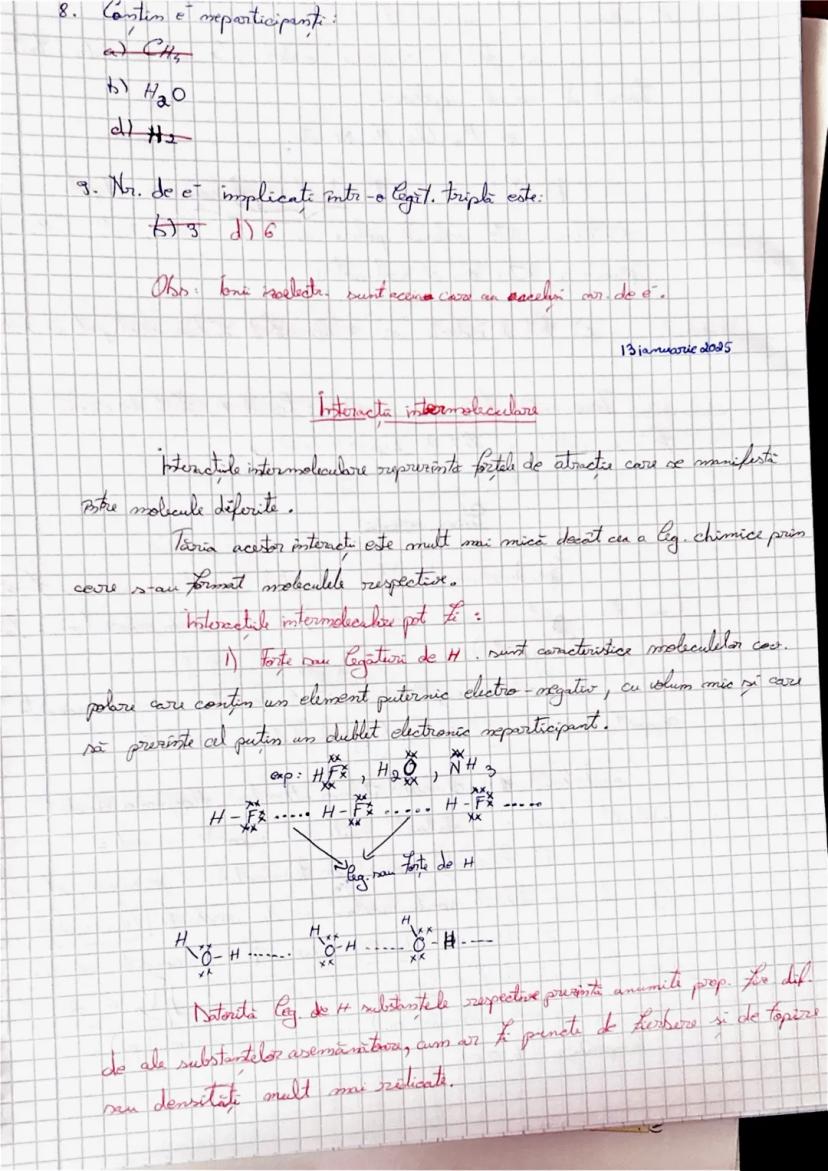 8. Conțin e⁻ neparticipanți:
a) CH₄
b) H₂O
d) H₂
9. Nr. de e⁻ implicați într-o legăt. triplă este:
b) 3 d) 6
Obs: Ionii izoelectr. sunt aceea care au același nr. de e⁻.
13 ianuarie 2025
Interacția intermoleculare
Interacțiile intermoleculare reprezintă forțele de atracție care se manifestă
între molecule diferite.
Tăria acestor interacți este mult mai mică decât cea a leg. chimice prin
care s-au format moleculele respective.
Interacțiile intermoleculare pot fi:
1) Forțe sau legături de H. sunt caracteristice moleculelor cov.
polare care conțin un element puternic electro-negativ, cu volum mic și care
să prezinte cel puțin un dublet electronic neparticipant.
exp: HF, H₂O, NH₃
H-F ..... H-F ..... H-F .....
leg. sau forțe de H
H H H
O-H ...... O-H ..... O-H ----
Datorită leg. de H substanțele respective prezintă anumite prop. fiz dif.
de ale substanțelor asemănătoare, cum ar fi puncte de fierbere și de topire
sau densități mult mai ridicate.